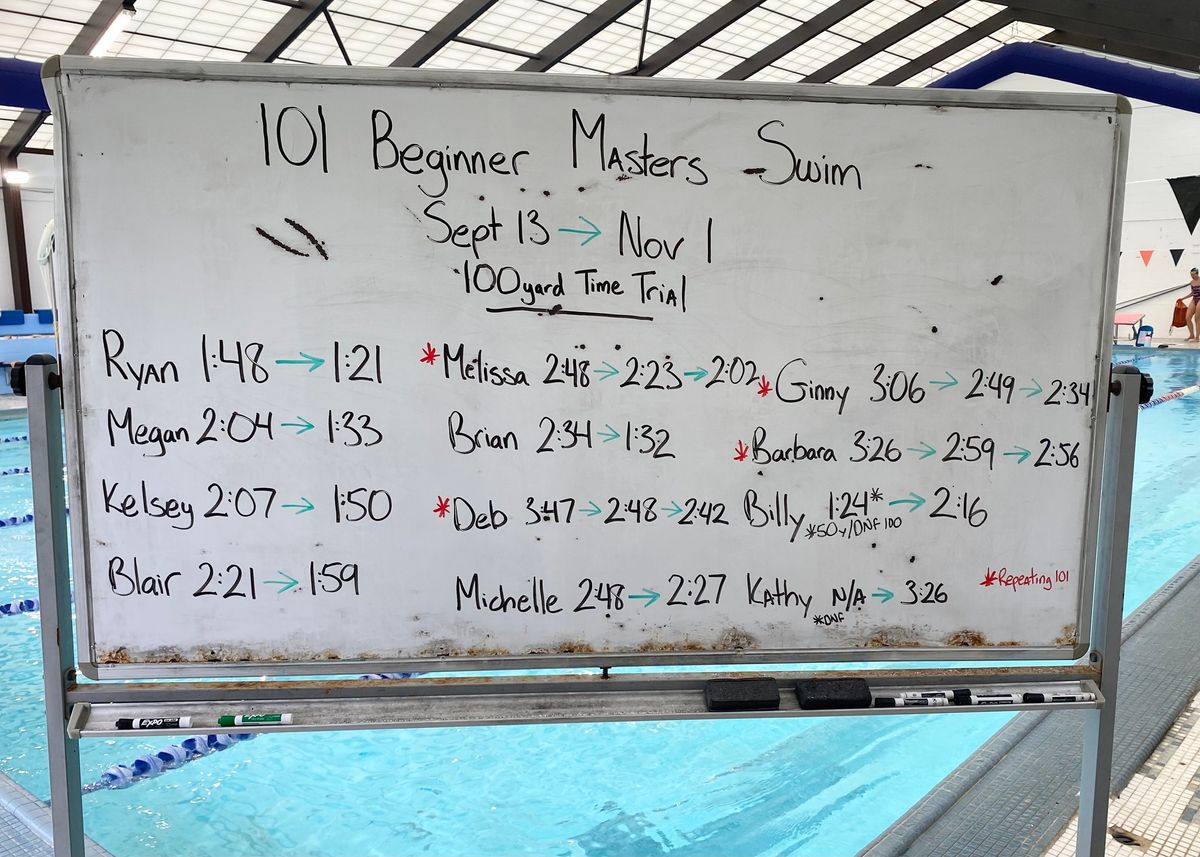 101 Beginner Masters Swim
Sept 13 → Nov 1
100 yard Time Trial
Ryan 1:48 → 1:21
Megan 2:04 → 1:33
Kelsey 2:07 → 1:50
Blair 2:21 → 1:59
* Melissa 2:48 → 2:23 → 2:02
Brian 2:34 → 1:32
* Deb 3:47 → 2:48 → 2:42
Michelle 2:48 → 2:27
* Ginny 3:06 → 2:49 → 2:34
* Barbara 3:26 → 2:59 → 2:56
Billy 1:24* → 2:16
*50y/DNF 100
Kathy N/A → 3:26
*DNF
* Repeating 101
EXPO